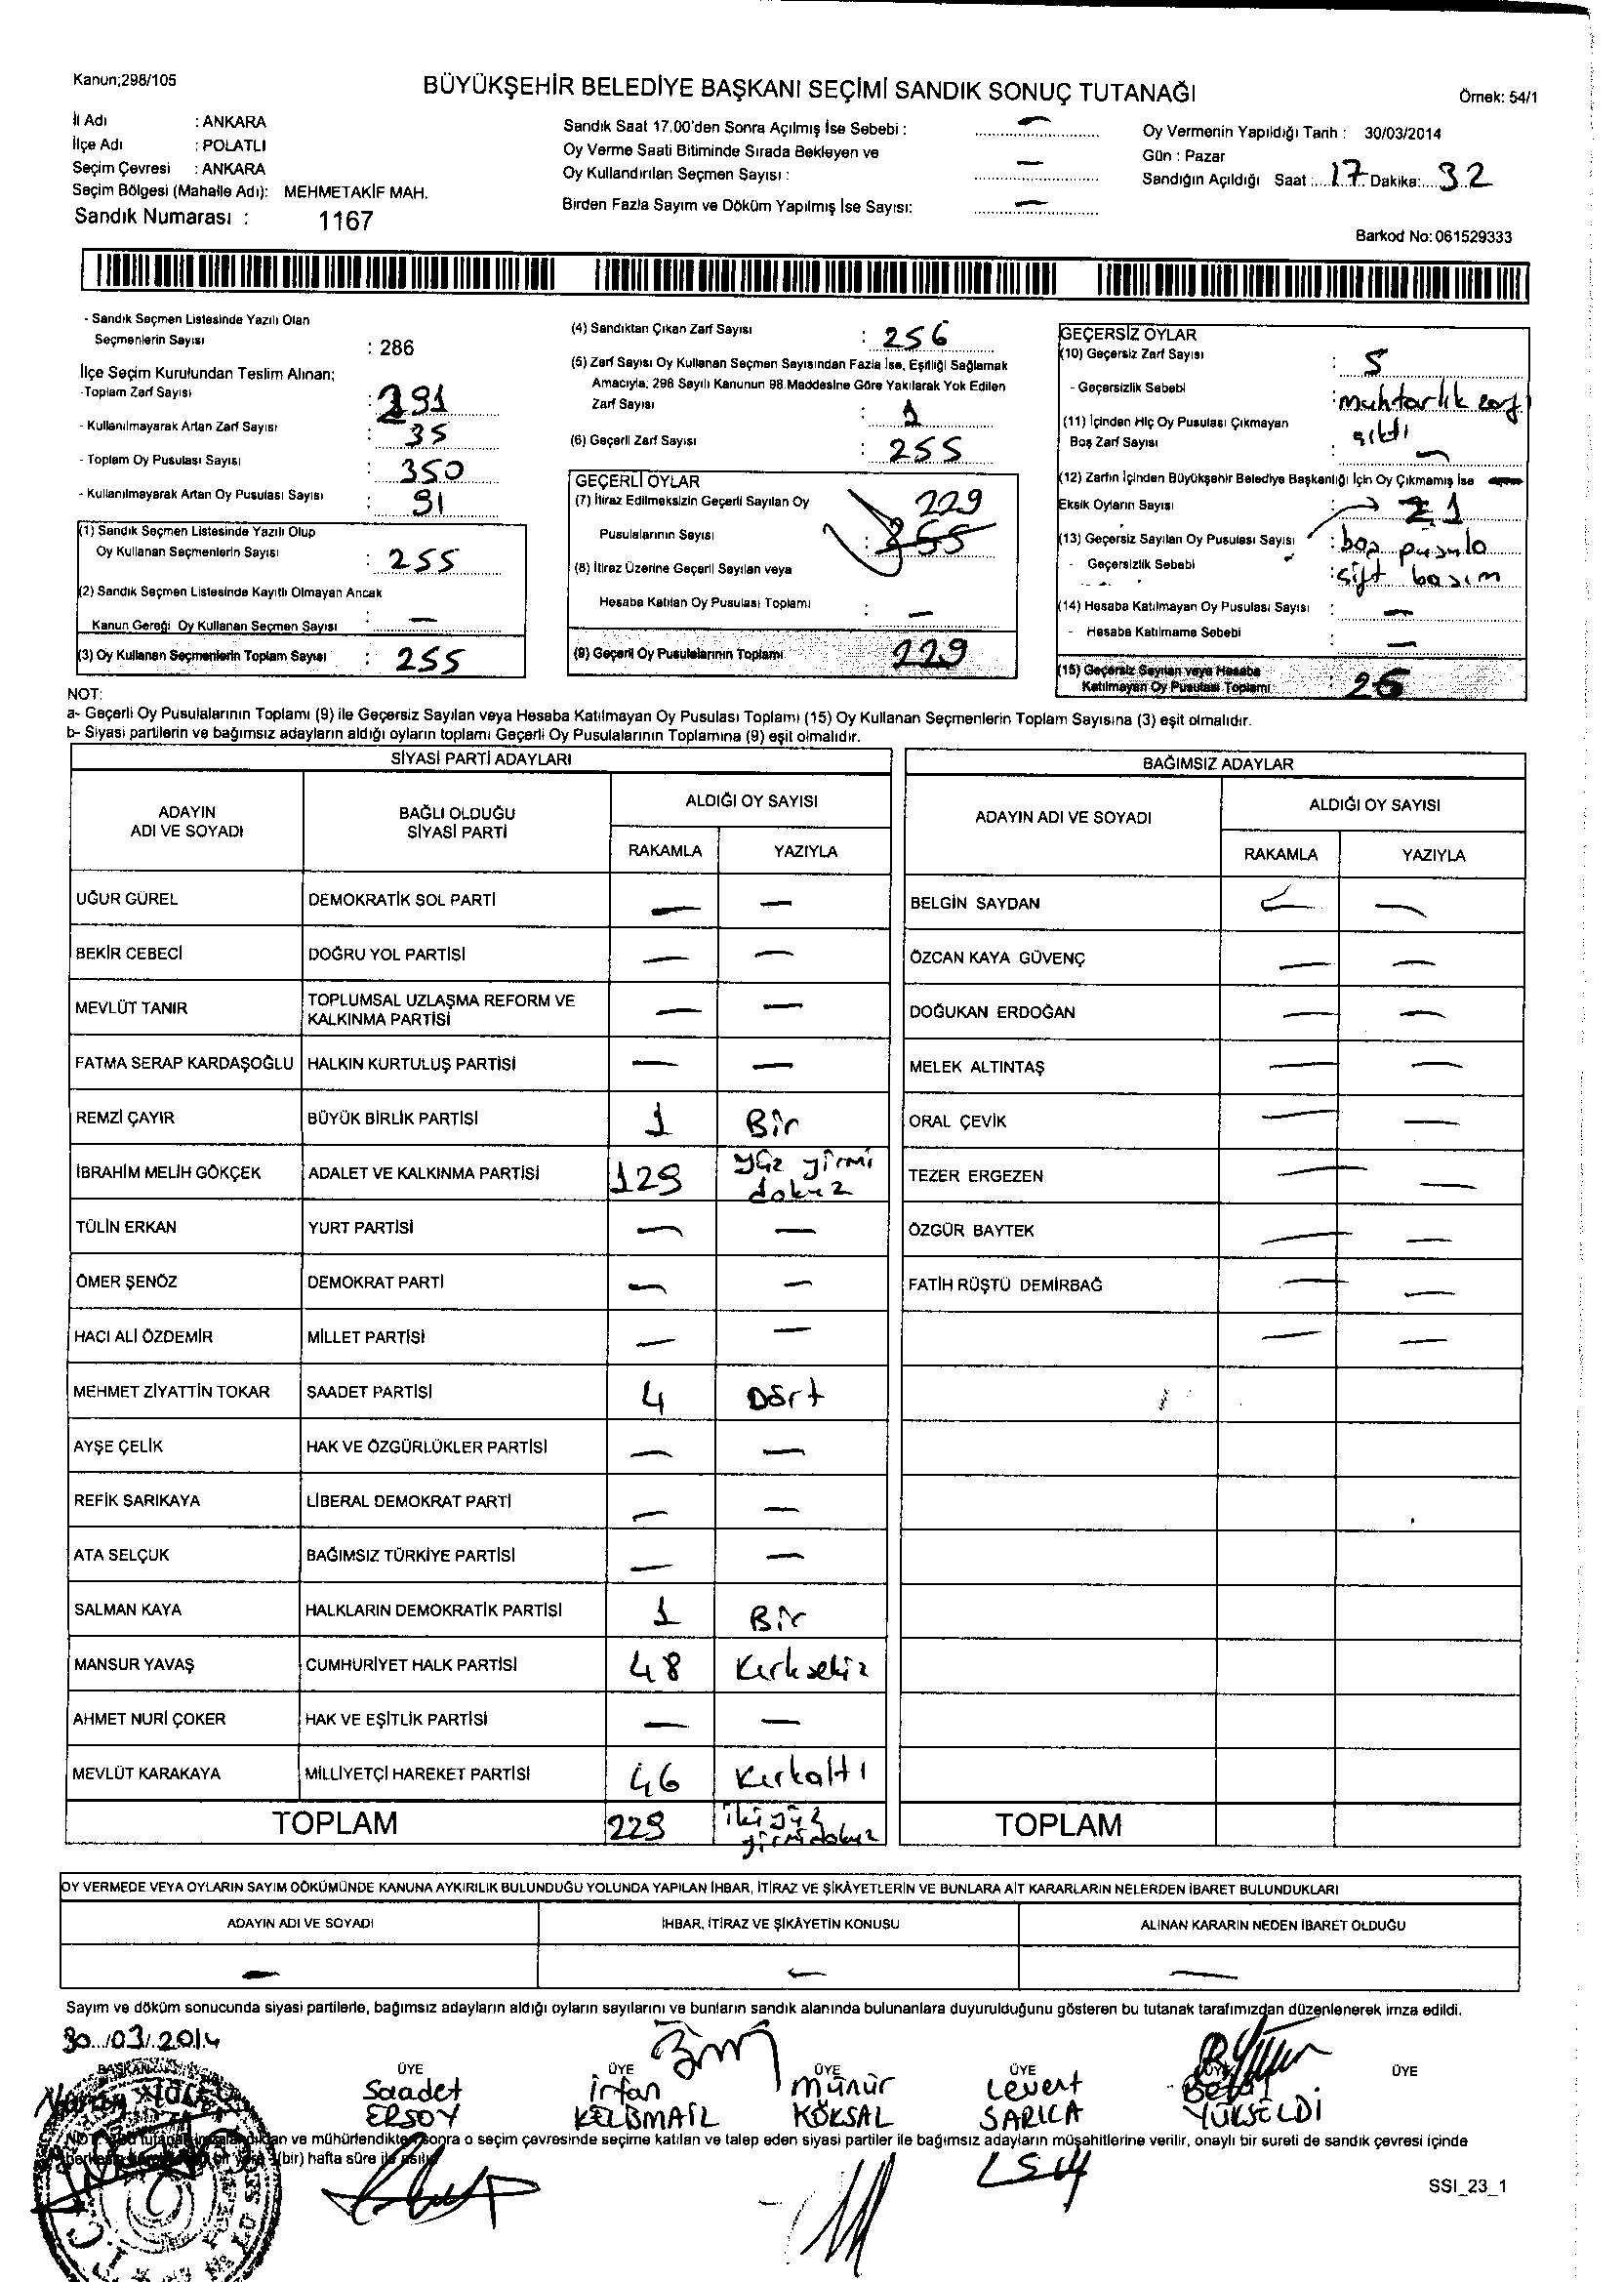 Kanun;298/105
BÜYÜKŞEHİR BELEDİYE BAŞKANI SEÇİMİ SANDIK SONUÇ TUTANAĞI
Örnek: 54/1
İl Adı : ANKARA
İlçe Adı : POLATLI
Seçim Çevresi : ANKARA
Seçim Bölgesi (Mahalle Adı): MEHMETAKİF MAH.
Sandık Numarası : 1167
Sandık Saat 17.00'den Sonra Açılmış İse Sebebi : —
Oy Verme Saati Bitiminde Sırada Bekleyen ve
Oy Kullandırılan Seçmen Sayısı : —
Birden Fazla Sayım ve Döküm Yapılmış İse Sayısı: —
Oy Vermenin Yapıldığı Tarih : 30/03/2014
Gün : Pazar
Sandığın Açıldığı Saat : 17 Dakika: 32
Barkod No: 061529333
- Sandık Seçmen Listesinde Yazılı Olan
Seçmenlerin Sayısı : 286
İlçe Seçim Kurulundan Teslim Alınan;
-Toplam Zarf Sayısı : 291
- Kullanılmayarak Artan Zarf Sayısı : 35
- Toplam Oy Pusulası Sayısı : 350
- Kullanılmayarak Artan Oy Pusulası Sayısı : 91
(1) Sandık Seçmen Listesinde Yazılı Olup
Oy Kullanan Seçmenlerin Sayısı : 255
(2) Sandık Seçmen Listesinde Kayıtlı Olmayan Ancak
Kanun Gereği Oy Kullanan Seçmen Sayısı : —
(3) Oy Kullanan Seçmenlerin Toplam Sayısı : 255
(4) Sandıktan Çıkan Zarf Sayısı : 256
(5) Zarf Sayısı Oy Kullanan Seçmen Sayısından Fazla İse, Eşitliği Sağlamak
Amacıyla; 298 Sayılı Kanunun 98.Maddesine Göre Yakılarak Yok Edilen
Zarf Sayısı : 1
(6) Geçerli Zarf Sayısı : 255
GEÇERLİ OYLAR
(7) İtiraz Edilmeksizin Geçerli Sayılan Oy 229
Pusulalarının Sayısı : 255
(8) İtiraz Üzerine Geçerli Sayılan veya
Hesaba Katılan Oy Pusulası Toplamı : —
(9) Geçerli Oy Pusulalarının Toplamı : 229
GEÇERSİZ OYLAR
(10) Geçersiz Zarf Sayısı : 5
- Geçersizlik Sebebi : muhtarlık zarfı
(11) İçinden Hiç Oy Pusulası Çıkmayan çıktı
Boş Zarf Sayısı : —
(12) Zarfın İçinden Büyükşehir Belediye Başkanlığı İçin Oy Çıkmamış İse
Eksik Oyların Sayısı : 21
(13) Geçersiz Sayılan Oy Pusulası Sayısı : boş pusula
- Geçersizlik Sebebi : çift basım
(14) Hesaba Katılmayan Oy Pusulası Sayısı : —
- Hesaba Katılmama Sebebi : —
(15) Geçersiz Sayılan veya Hesaba
Katılmayan Oy Pusulası Toplamı : 26
NOT:
a- Geçerli Oy Pusulalarının Toplamı (9) ile Geçersiz Sayılan veya Hesaba Katılmayan Oy Pusulası Toplamı (15) Oy Kullanan Seçmenlerin Toplam Sayısına (3) eşit olmalıdır.
b- Siyasi partilerin ve bağımsız adayların aldığı oyların toplamı Geçerli Oy Pusulalarının Toplamına (9) eşit olmalıdır.
SİYASİ PARTİ ADAYLARI
ADAYIN ADI VE SOYADI BAĞLI OLDUĞU SİYASİ PARTİ ALDIĞI OY SAYISI
RAKAMLA YAZIYLA
UĞUR GÜREL DEMOKRATİK SOL PARTİ — —
BEKİR CEBECİ DOĞRU YOL PARTİSİ — —
MEVLÜT TANIR TOPLUMSAL UZLAŞMA REFORM VE KALKINMA PARTİSİ — —
FATMA SERAP KARDAŞOĞLU HALKIN KURTULUŞ PARTİSİ — —
REMZİ ÇAYIR BÜYÜK BİRLİK PARTİSİ 1 Bir
İBRAHİM MELİH GÖKÇEK ADALET VE KALKINMA PARTİSİ 129 yüz yirmi dokuz
TÜLİN ERKAN YURT PARTİSİ — —
ÖMER ŞENÖZ DEMOKRAT PARTİ — —
HACI ALİ ÖZDEMİR MİLLET PARTİSİ — —
MEHMET ZİYATTİN TOKAR SAADET PARTİSİ 4 Dört
AYŞE ÇELİK HAK VE ÖZGÜRLÜKLER PARTİSİ — —
REFİK SARIKAYA LİBERAL DEMOKRAT PARTİ — —
ATA SELÇUK BAĞIMSIZ TÜRKİYE PARTİSİ — —
SALMAN KAYA HALKLARIN DEMOKRATİK PARTİSİ 1 Bir
MANSUR YAVAŞ CUMHURİYET HALK PARTİSİ 48 Kırksekiz
AHMET NURİ ÇOKER HAK VE EŞİTLİK PARTİSİ — —
MEVLÜT KARAKAYA MİLLİYETÇİ HAREKET PARTİSİ 46 Kırkaltı
TOPLAM 229 ikiyüz yirmidokuz
BAĞIMSIZ ADAYLAR
ADAYIN ADI VE SOYADI ALDIĞI OY SAYISI
RAKAMLA YAZIYLA
BELGİN SAYDAN — —
ÖZCAN KAYA GÜVENÇ — —
DOĞUKAN ERDOĞAN — —
MELEK ALTINTAŞ — —
ORAL ÇEVİK — —
TEZER ERGEZEN — —
ÖZGÜR BAYTEK — —
FATİH RÜŞTÜ DEMİRBAĞ — —
— —
TOPLAM
OY VERMEDE VEYA OYLARIN SAYIM DÖKÜMÜNDE KANUNA AYKIRILIK BULUNDUĞU YOLUNDA YAPILAN İHBAR, İTİRAZ VE ŞİKÂYETLERİN VE BUNLARA AİT KARARLARIN NELERDEN İBARET BULUNDUKLARI
ADAYIN ADI VE SOYADI İHBAR, İTİRAZ VE ŞİKÂYETİN KONUSU ALINAN KARARIN NEDEN İBARET OLDUĞU
— — —
Sayım ve döküm sonucunda siyasi partilerle, bağımsız adayların aldığı oyların sayılarını ve bunların sandık alanında bulunanlara duyurulduğunu gösteren bu tutanak tarafımızdan düzenlenerek imza edildi.
30/03/2014
BAŞKAN ÜYE ÜYE ÜYE ÜYE ÜYE ÜYE
Saadet İrfan Münür Levent
ERSOY KÖKSAL SARICA YÜKSELDİ
ve mühürlendikten sonra o seçim çevresinde seçime katılan ve talep eden siyasi partiler ile bağımsız adayların müşahitlerine verilir, onaylı bir sureti de sandık çevresi içinde
(bir) hafta süre ile asılır.
SSI_23_1